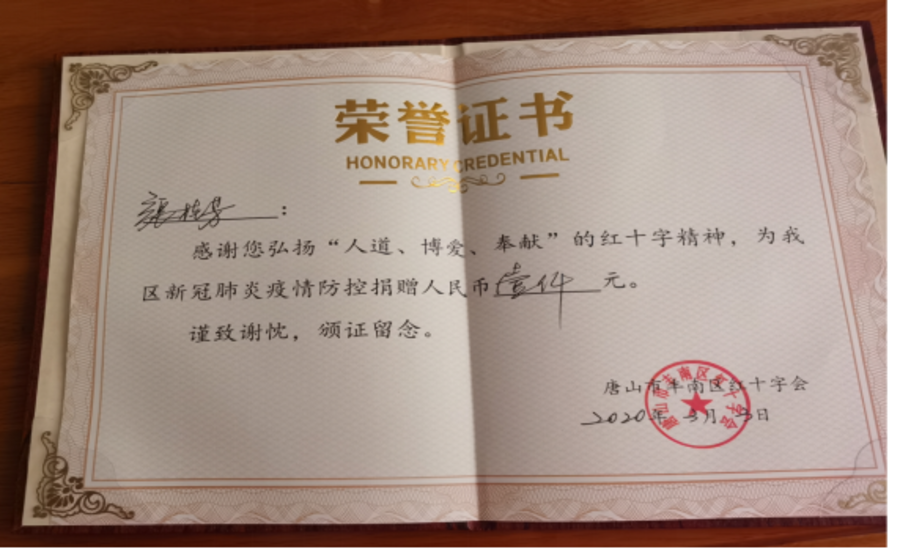 荣誉证书
HONORARY CREDENTIAL
张桂芬：
感谢您弘扬“人道、博爱、奉献”的红十字精神，为我
区新冠肺炎疫情防控捐赠人民币壹仟元。
谨致谢忱，颁证留念。
唐山市丰南区红十字会
2020年3月3日
唐山市丰南区红十字会